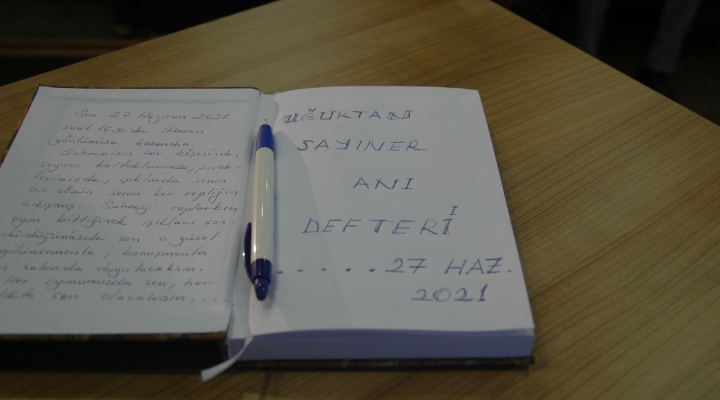 Sen 27 Haziran 2021
saat 15.30'da
gönlümüze kazındın.
Sahnemizin her köşesinde,
seyirci koltuklarında, prok-
terimizde, ışıklarda senin
bir sözün senin bir repliğin
Sahneyi toplarken
oyun bittiğinde ışıkları sön-
dürdüğümüzde sen o güzel
gülümsemenle, konuşmanla
salonda duyulacaksın.
Her oyunumuzda sen, her
sen olacaksın....
UĞURTAN
SAYINER
ANI
DEFTERİ
.....27 HAZ.
2021